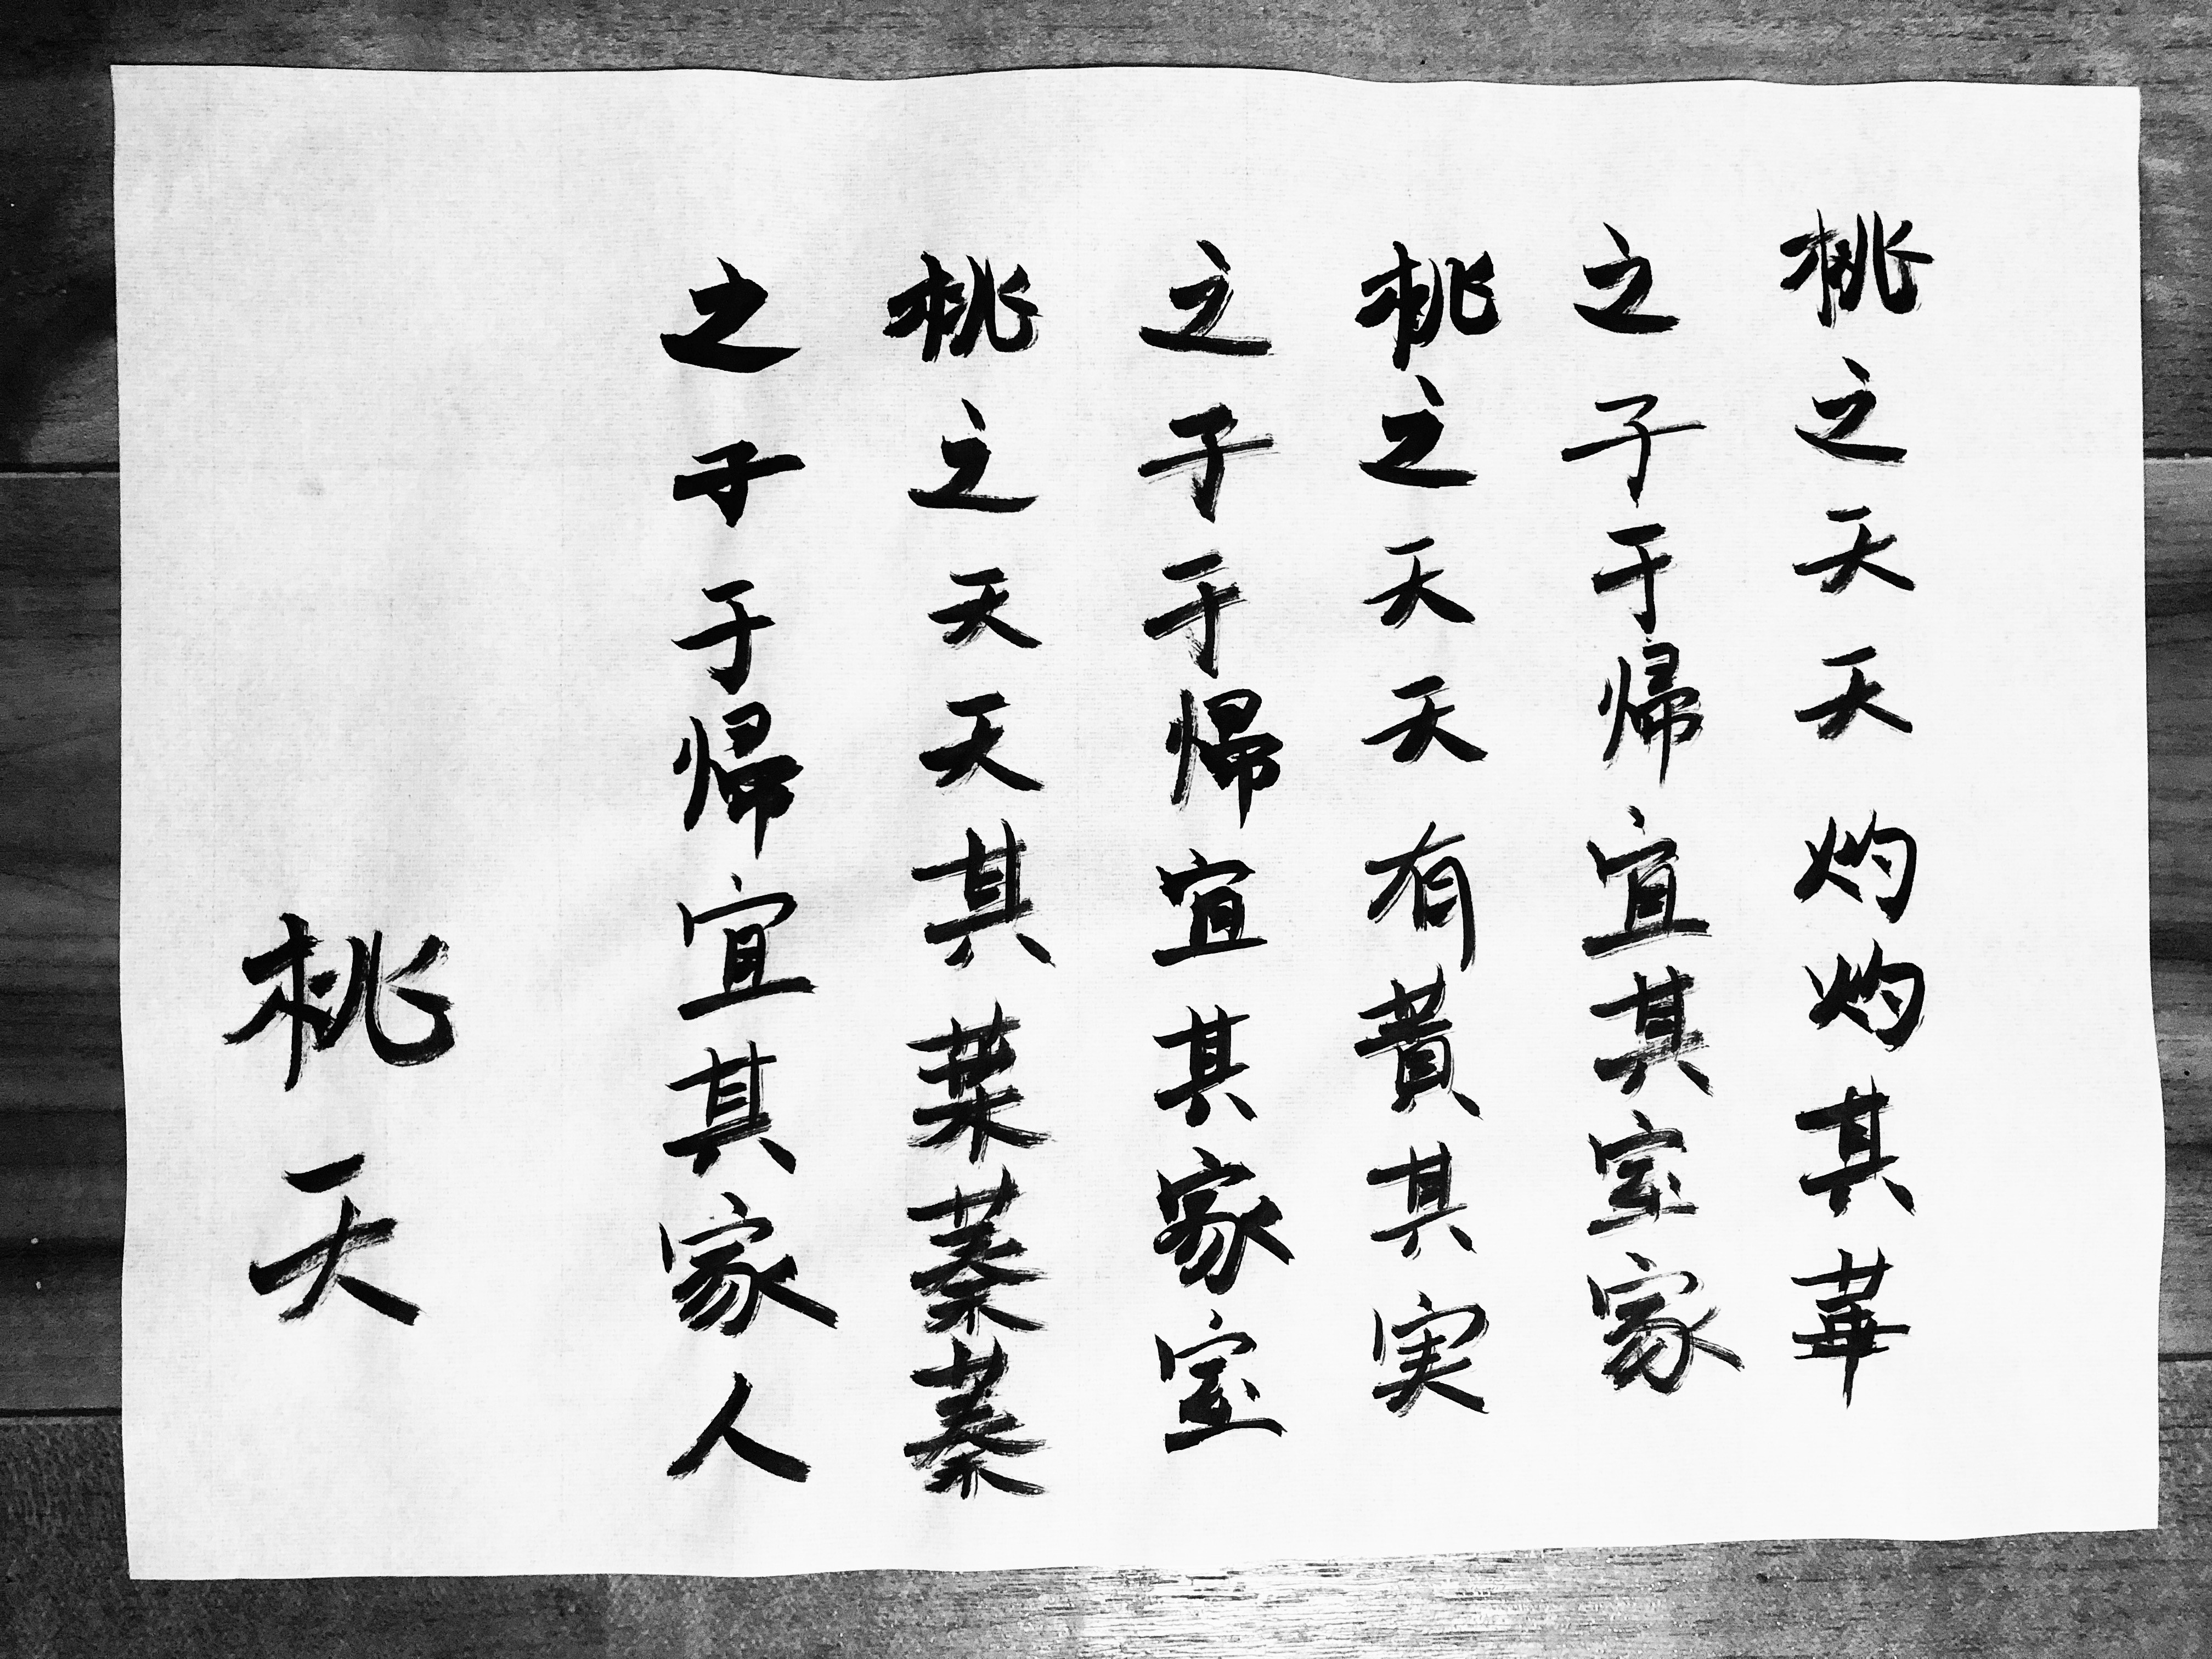 桃之夭夭灼灼其華
之子于帰宜其室家
桃之夭夭有蕡其実
之子于帰宜其家室
桃之夭夭其葉蓁蓁
之子于帰宜其家人
桃夭